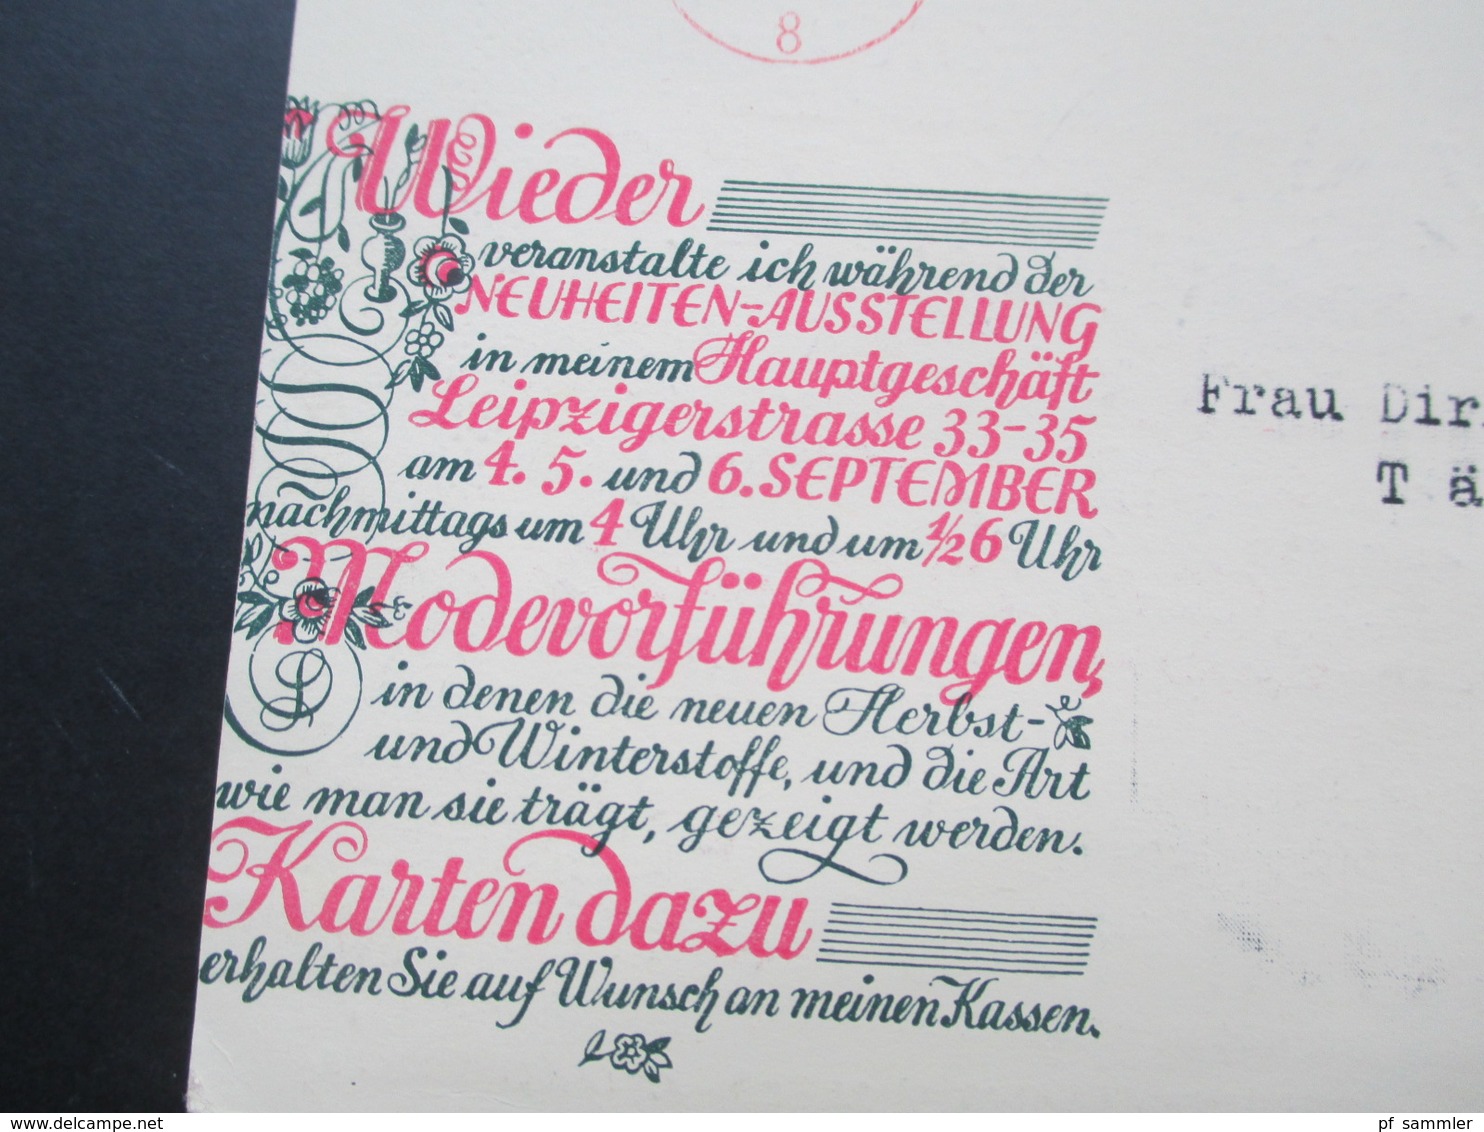 8
Wieder
veranstalte ich während der
NEUHEITEN-AUSSTELLUNG
in meinem Hauptgeschäft
Leipzigerstrasse 33-35
am 4. 5. und 6. SEPTEMBER
nachmittags um 4 Uhr und um 1/2 6 Uhr
Modevorführungen,
in denen die neuen Herbst-
und Winterstoffe, und die Art
wie man sie trägt, gezeigt werden.
Karten dazu
erhalten Sie auf Wunsch an meinen Kassen.
Frau Dir
T ä
delcampe.net
pf_sammler